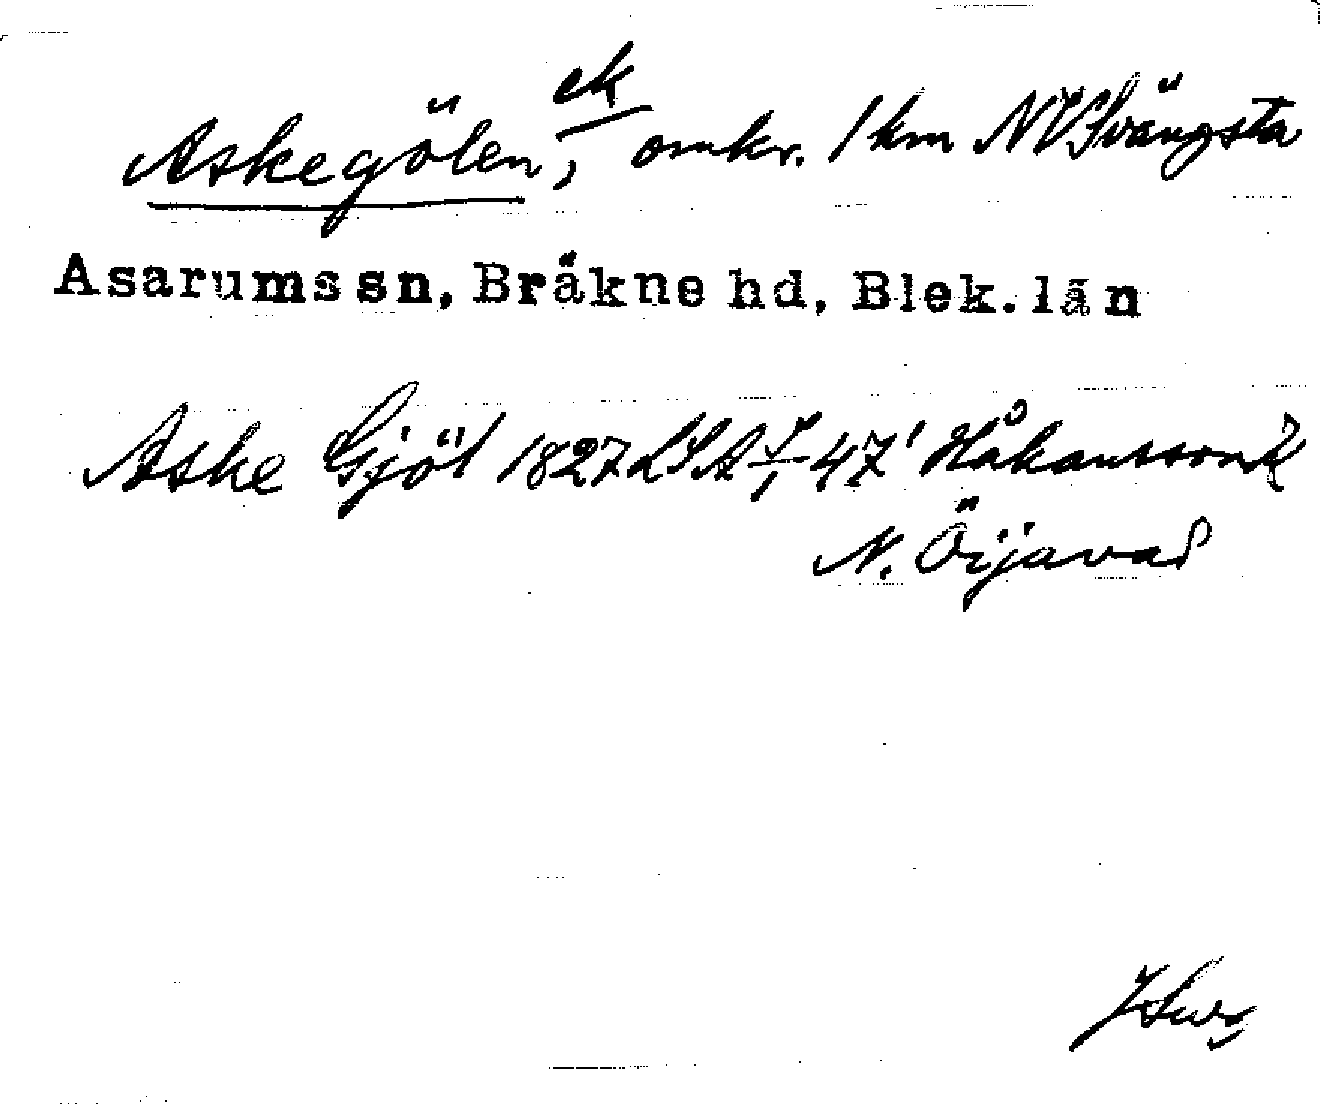 Askegölen, ek omkr. 1 km NV Svängsta
Asarums sn, Bräkne hd, Blek. län
Aske Gjöl 1827 LSA Håkansson
N. Öijavad